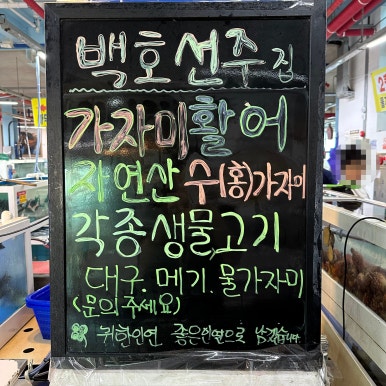 백호선주집
가자미활어
자연산 수(홍)가자미
각종생물고기
대구. 메기. 물가자미
(문의주세요)
귀한인연 좋은인연으로